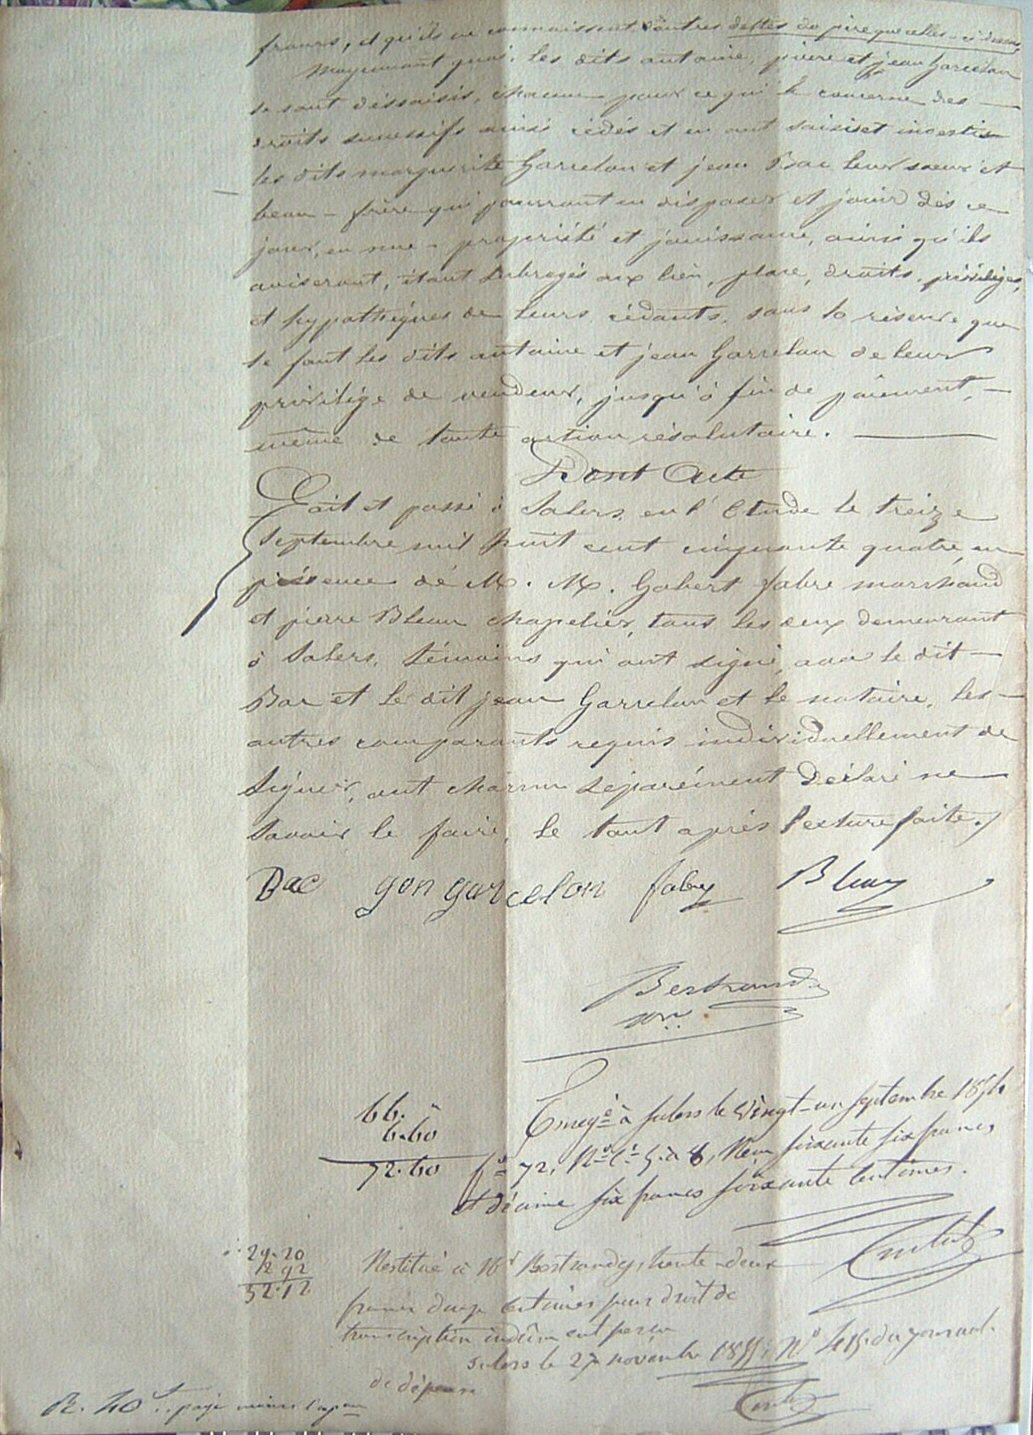 francs, et qu'ils ne connaissent d'autres dettes du père que celles-ci dessus
Moyennant quoi, les dits antoine, pierre et jean Garcelon
se sont déssaisis, chacun pour ce qui le concerne des
droits successifs ainsi cédés et en ont saisis et investis
les dits marguerite Garcelon et jean Bac leur soeur et
beau-frère qui pourront en disposer et jouir dès ce
jour, en nue-propriété et jouissance, ainsi qu'ils
aviseront, étant subrogés aux lieu, place, droits, priviléges,
et hypothéques de leurs cédants, sous la réserve que
se font les dits antoine et jean Garcelon de leur
privilége de vendeur, jusqu'à fin de paiement,
même de toute action résolutoire.
Dont Acte
Fait et passé à Salers, en l'Etude le treize
septembre mil huit cent cinquante quatre, en
présence de M. M. Gabert fabre marchand
et pierre Bleau chapelier, tous les deux demeurant
à Salers, témoins qui ont signé, avec le dit
Bac et le dit jean Garcelon et le notaire, les
autres comparants requis individuellement de
signer, ont chacun séparément déclaré ne
savoir le faire, le tout après lecture faite./
Bac gon garcelon fabre Bleau
Bertrandy
nre
66. "
6.60
72.60
Enregé à Salers le vingt-un septembre 1854
fo 72, Ro Ce 5 à 8, Reçu soixante six francs
et décime six francs soixante centimes.
29.20
2 92
32.12
Restitué à Mr Bertrandy, trente-deux
francs douze centimes pour droit de
transcription indûment perçu
Salers le 27 novembre 1855, No 415 du journal
de dépense
R. 40